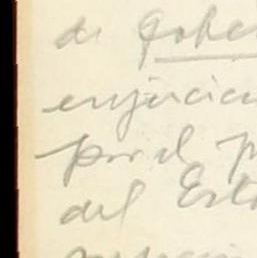 de Gober
enjuicia
por el p
del Est